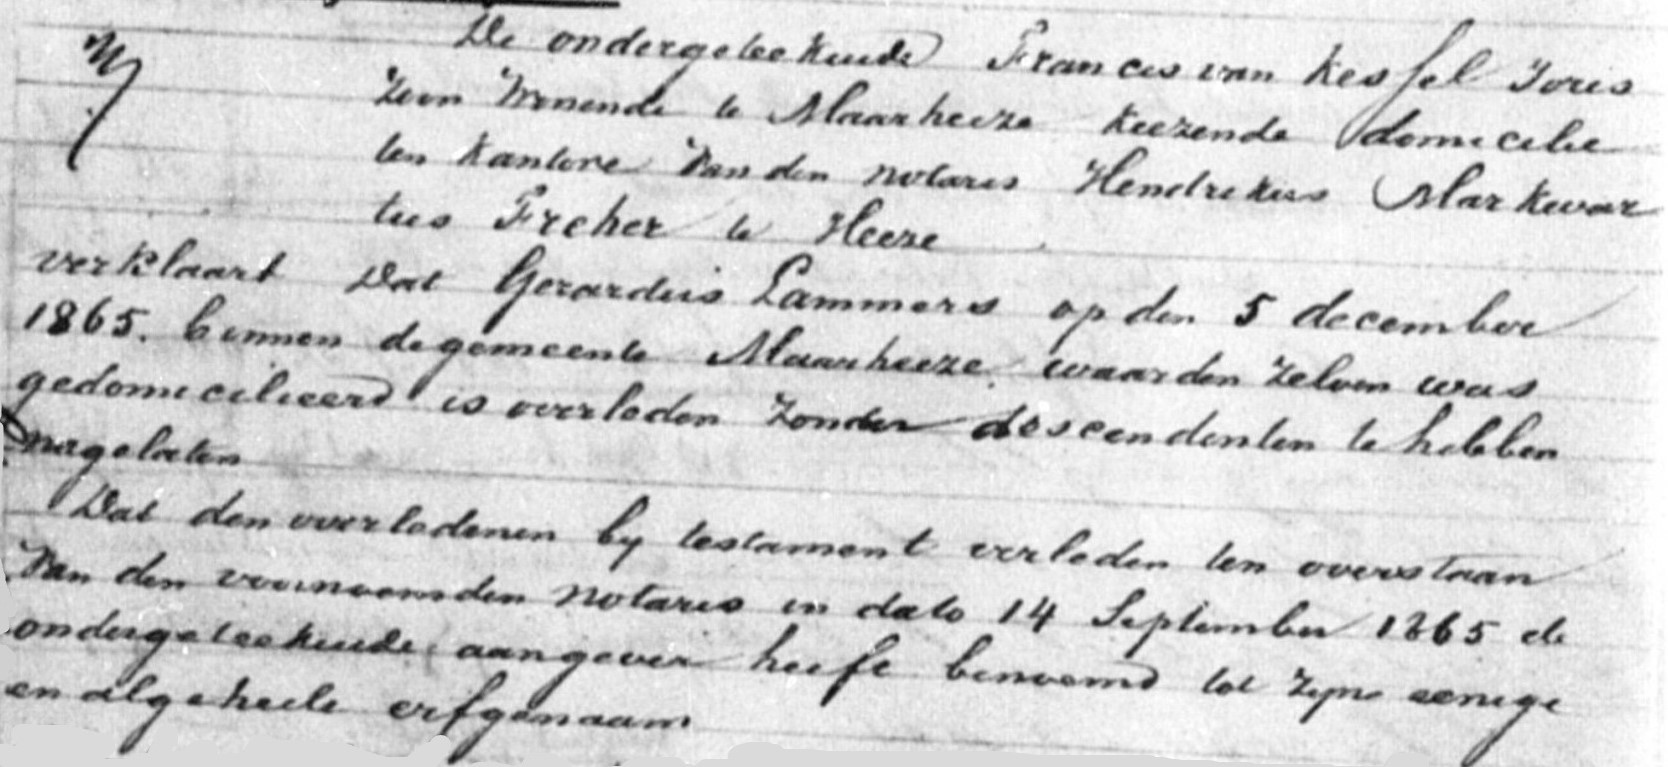 De ondergeteekende Francis van Kessel Joris
Zoon Wonende te Maarheeze Keezende domicilie
ten Kantore Van den notaris Hendrikus Markwar
tus Freher te Heeze
verklaart Dat Gerardus Lammers op den 5 december
1865. binnen de gemeente Maarheeze. waar den Zelven was
gedomicilieerd is overleden Zonder descendenten te hebben
nagelaten
Dat den overledenen by testament verleden ten overstaan
Van den voornoemden Notaris in dato 14 September 1865 de
ondergeteekende aangever heeft benoemd tot Zyne eenige
en algeheele erfgenaam